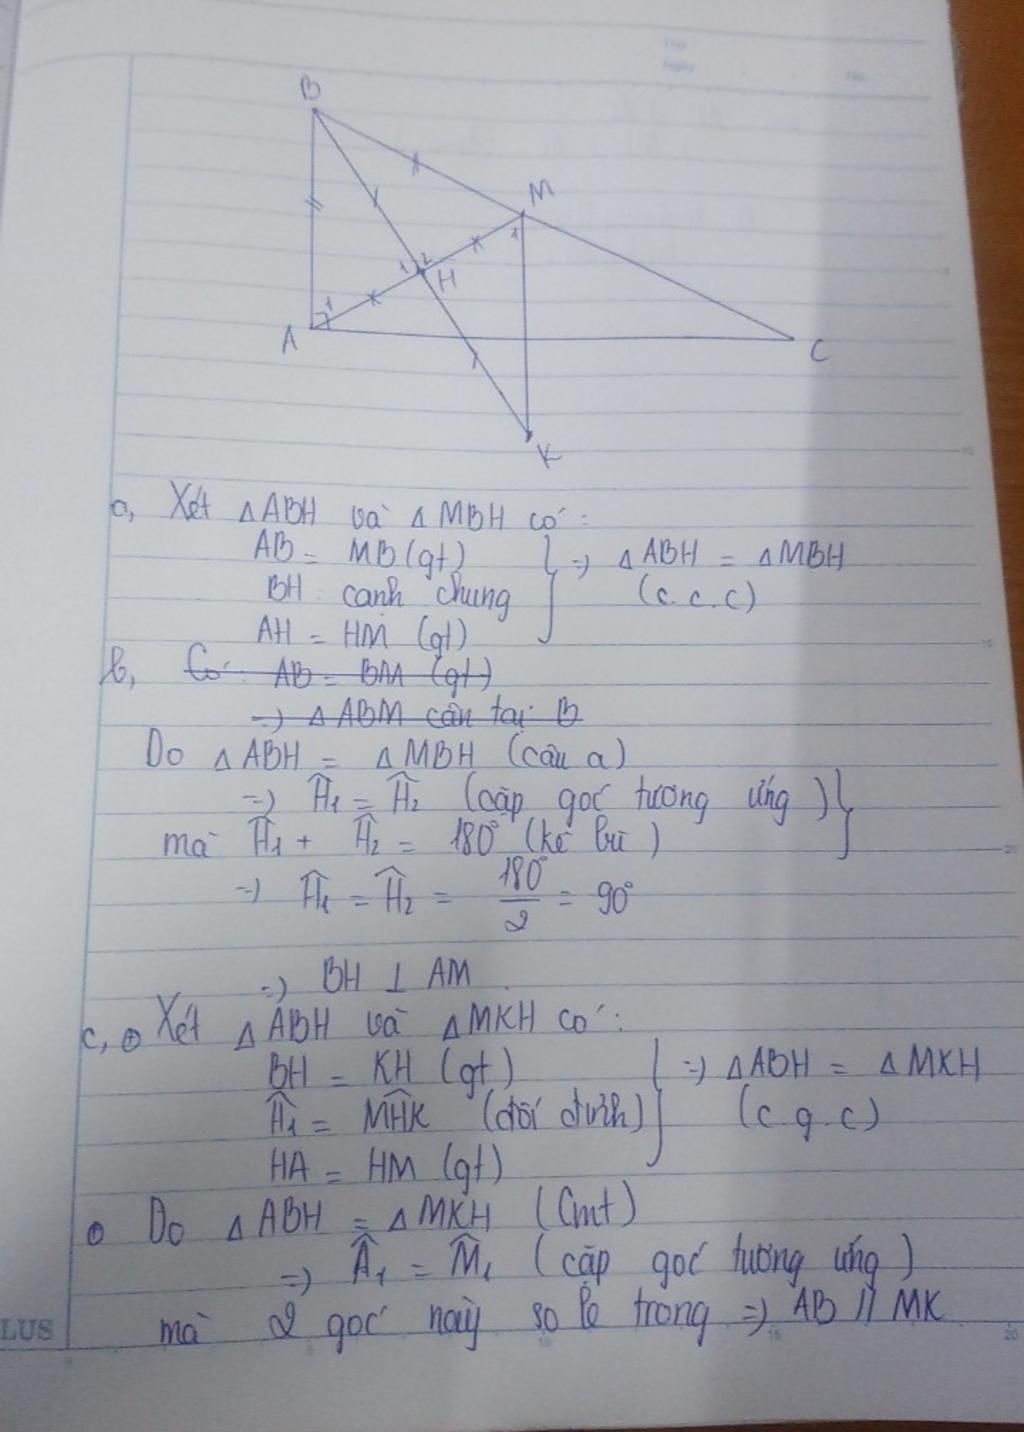 B
M
1
1 2
H
1
A
C
K
a, Xét △ABH và △MBH có:
AB = MB (gt)
BH: cạnh chung
AH = HM (gt)
=> △ABH = △MBH
(c.c.c)
b, Có: AB = BM (gt)
=> △ABM cân tại B
Do △ABH = △MBH (câu a)
=> Ĥ₁ = Ĥ₂ (cặp góc tương ứng)
mà Ĥ₁ + Ĥ₂ = 180° (kề bù)
=> Ĥ₁ = Ĥ₂ = 180°/2 = 90°
=> BH ⊥ AM
c, Xét △ABH và △MKH có:
BH = KH (gt)
Ĥ₁ = MĤK (đối đỉnh)
HA = HM (gt)
=> △ABH = △MKH
(c.g.c)
Do △ABH = △MKH (Cmt)
=> Â₁ = M̂₁ (cặp góc tương ứng)
mà 2 góc này so le trong => AB // MK
LUS